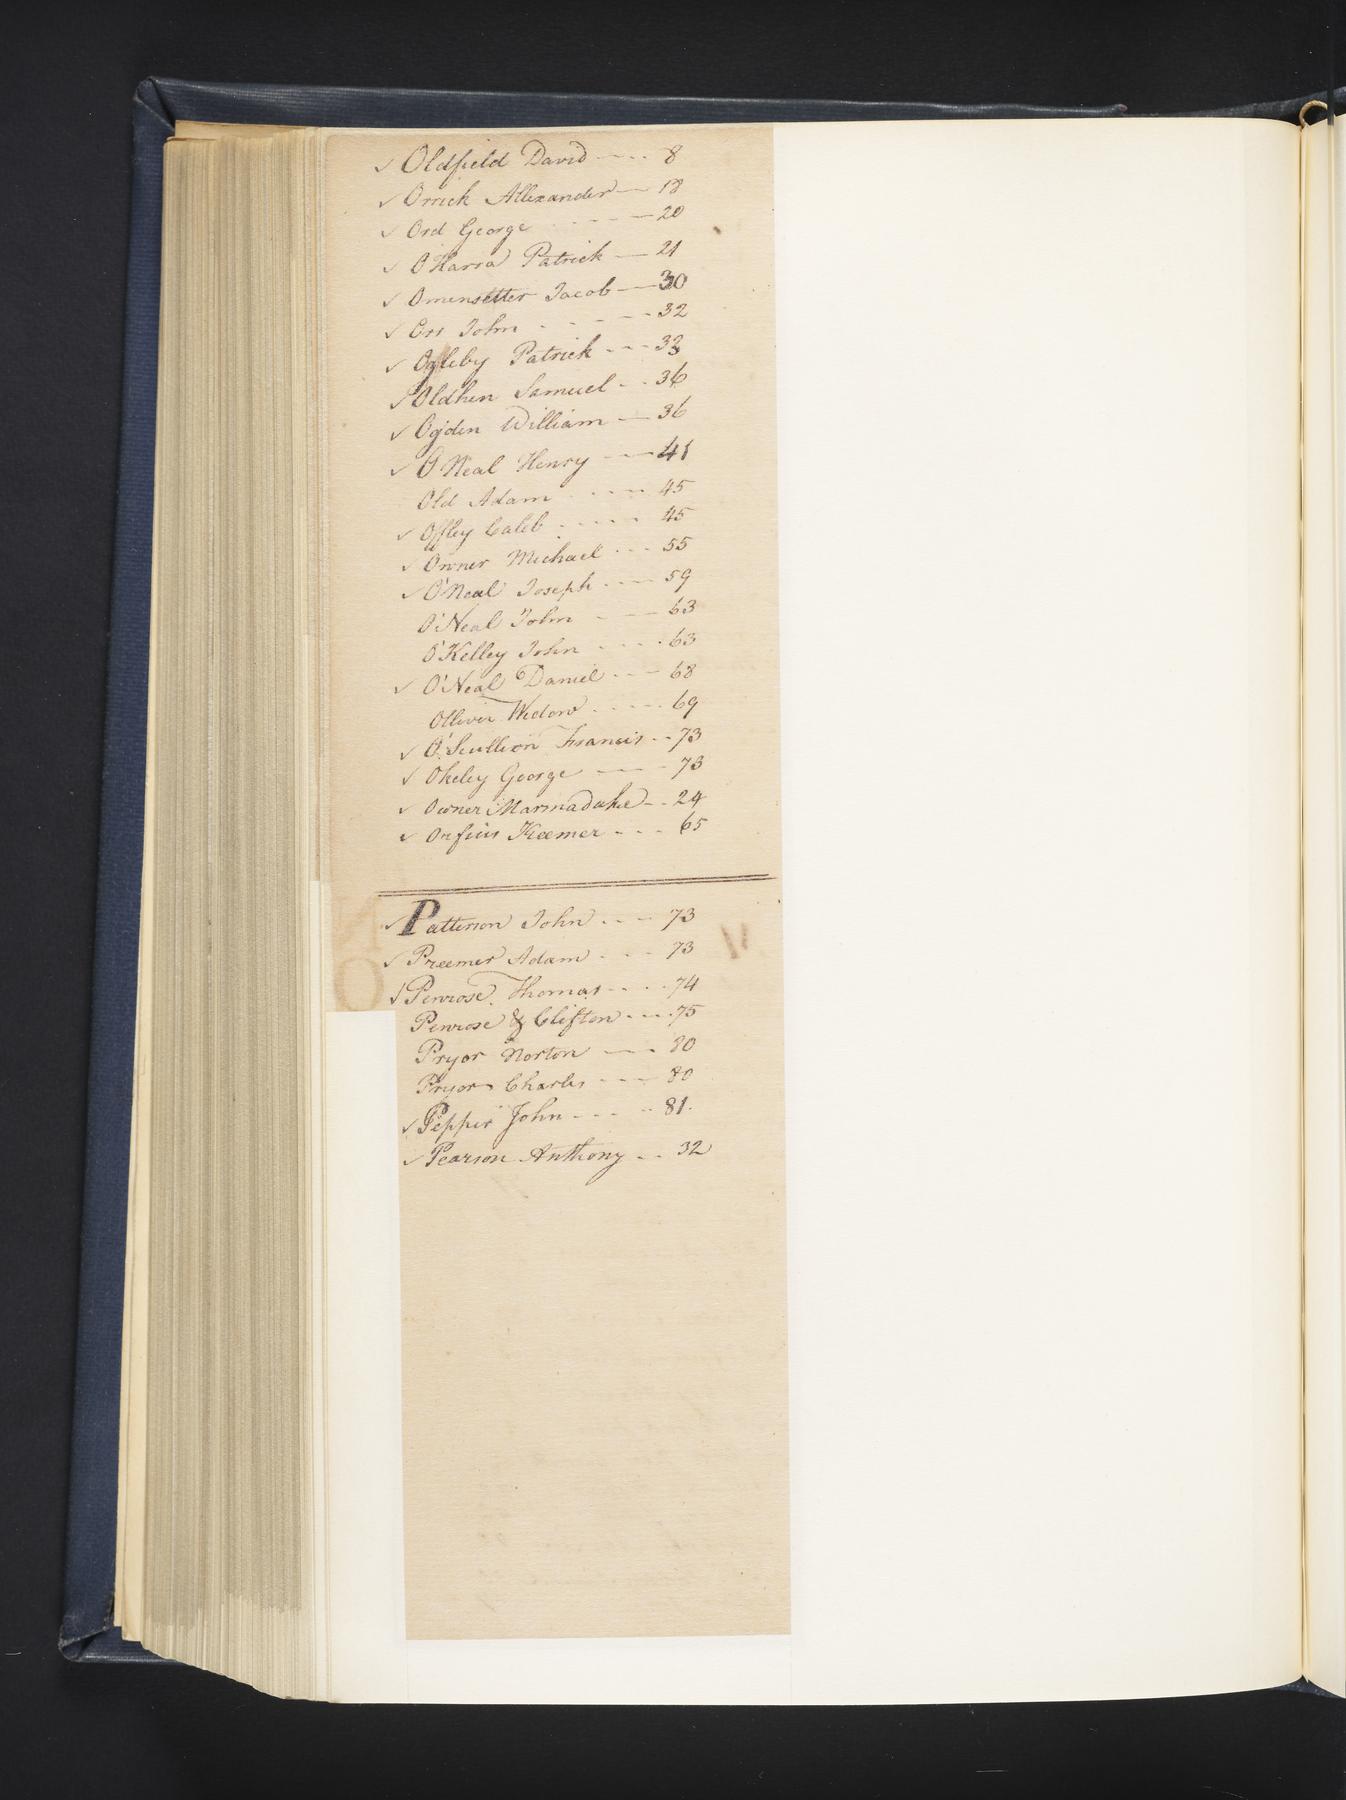 ✓ Oldfield David ---- 8
✓ Orrick Allexander -- 18
✓ Ord George - - - - 20
✓ O Harra Patrick -- 21
✓ Omensetter Jacob -- 30
✓ Orr John - - - - 32
✓ Ogleby Patrick --- 33
✓ Oldhen Samuel -- 36
✓ Ogden William -- 36
✓ O Neal Henry --- 41
Old Adam ---- 45
✓ Offley Caleb ---- 45
✓ Owner Michael --- 55
✓ O'Neal Joseph --- 59
O'Neal John - -- 63
O'Kelley John ---- 63
✓ O'Neal Daniel --- 68
Olliver Widow ----- 69
✓ O'Scullion Francis -- 73
✓ Okeley George --- 73
✓ Owner Marmaduke -- 24
✓ Keemer --- 65
✓ Patterson John ---- 73
✓ Preemer Adam --- 73
✓ Penrose Thomas ---- 74
Penrose & Clifton ---- 75
Pryor Norton --- 80
Pryor Charles --- 80
✓ Pepper John ----- 81.
✓ Pearson Anthony -- 32